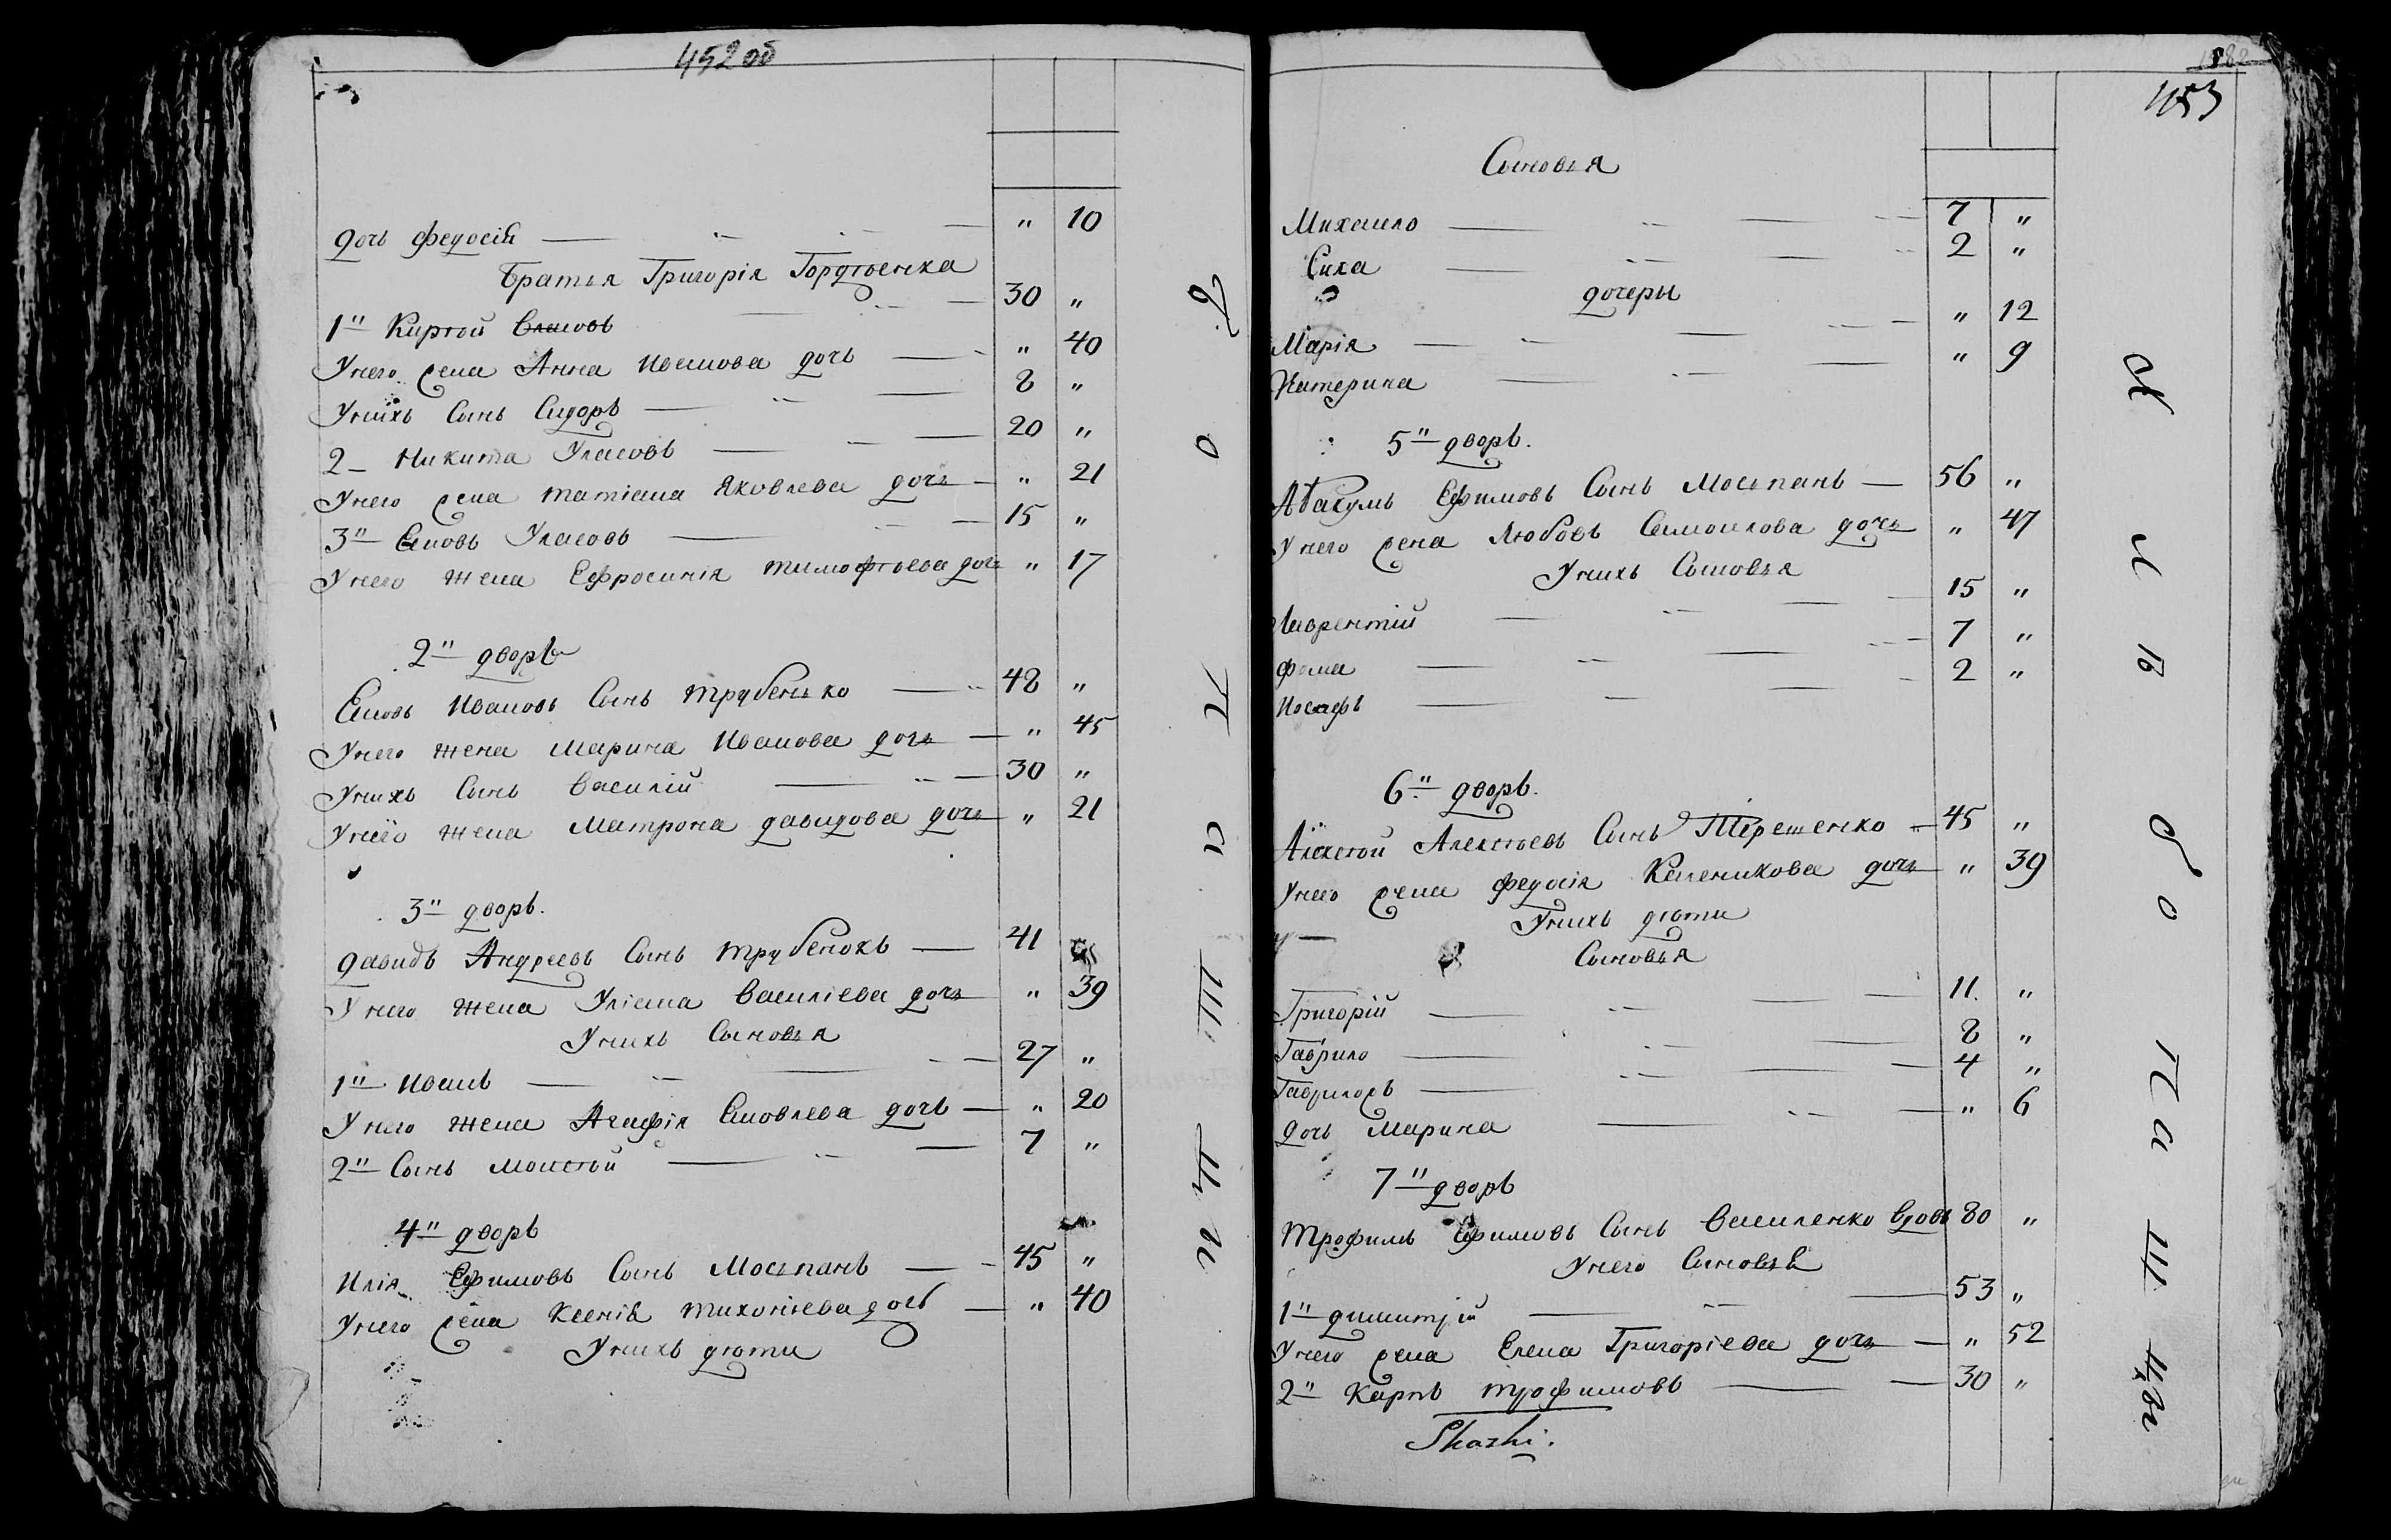 452 об
дочь Федосія — " 10
Братья Григорія Гордѣенка
1" Кирѣй Власовъ — 30 "
У него жена Анна Иванова дочь — " 40
У нихъ Сынъ Сидоръ — 8 "
2 — Никита Уласовъ — 20 "
У него жена татіана Яковлева дочь — " 21
3" Яковъ Уласовъ — 15 "
У него жена Ефросинія тимофѣева дочь " 17
2" дворъ
Яковъ Ивановъ Сынъ трубенько — 48 "
У него жена Марина Иванова дочь — " 45
У нихъ Сынъ Василій — 30 "
У него жена Матрона давидова дочь " 21
3" дворъ.
давидъ Андреевъ Сынъ трубенокъ — 41
У него жена Уліана Василіева дочь " 39
У нихъ Сыновья
1" Иванъ — 27 "
У него жена Агафія Яковлева дочь — " 20
2" Сынъ Моисѣй — 7 "
4" дворъ
Илія Ефимовъ Сынъ Мосьпанъ — 45 "
У него жена Ксенія тихоніева дочь — " 40
У нихъ дѣти
1582
453
Сыновья
Михаило — 7 "
Сила — 2 "
дочеры
Марія — " 12
Катерина — " 9
5" дворъ.
Абакумъ Ефимовъ Сынъ Мосьпанъ — 56 "
У него жена Любовь Самоилова дочь " 47
У нихъ Сыновья
Лаврентій — 15 "
Фома — 7 "
Иосафъ — 2 "
6" дворъ.
Алексѣй Алексѣевъ Сынъ Терешенко — 45 "
У него жена Федосія Каленикова дочь " 39
У нихъ дѣти
Сыновья
Григорій — 11. "
Гаврило — 8 "
Гаврилоръ — 4 "
дочь Марина — " 6
7" дворъ
трофимъ Ефимовъ Сынъ Василенко вдовъ 80 "
У него Сыновья
1" димитрій — 53 "
У него жена Елена Григоріева дочь — " 52
2" Карпъ трофимовъ — 30 "